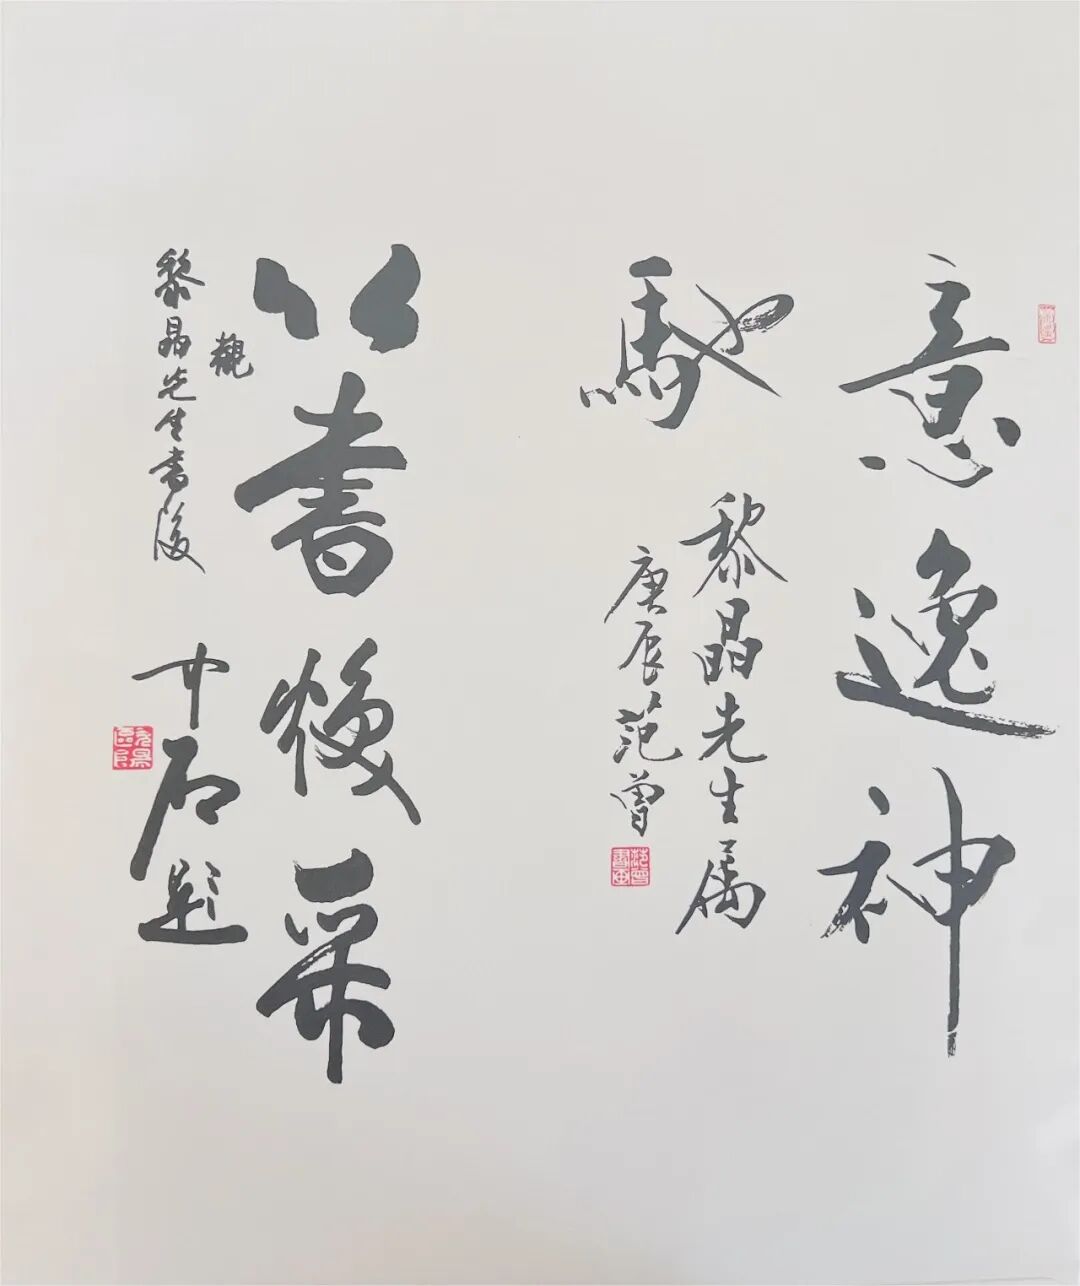 意逸神
馳
黎晶先生属
庚辰范曾
以書焕采
觀
黎晶先生書後
中石题